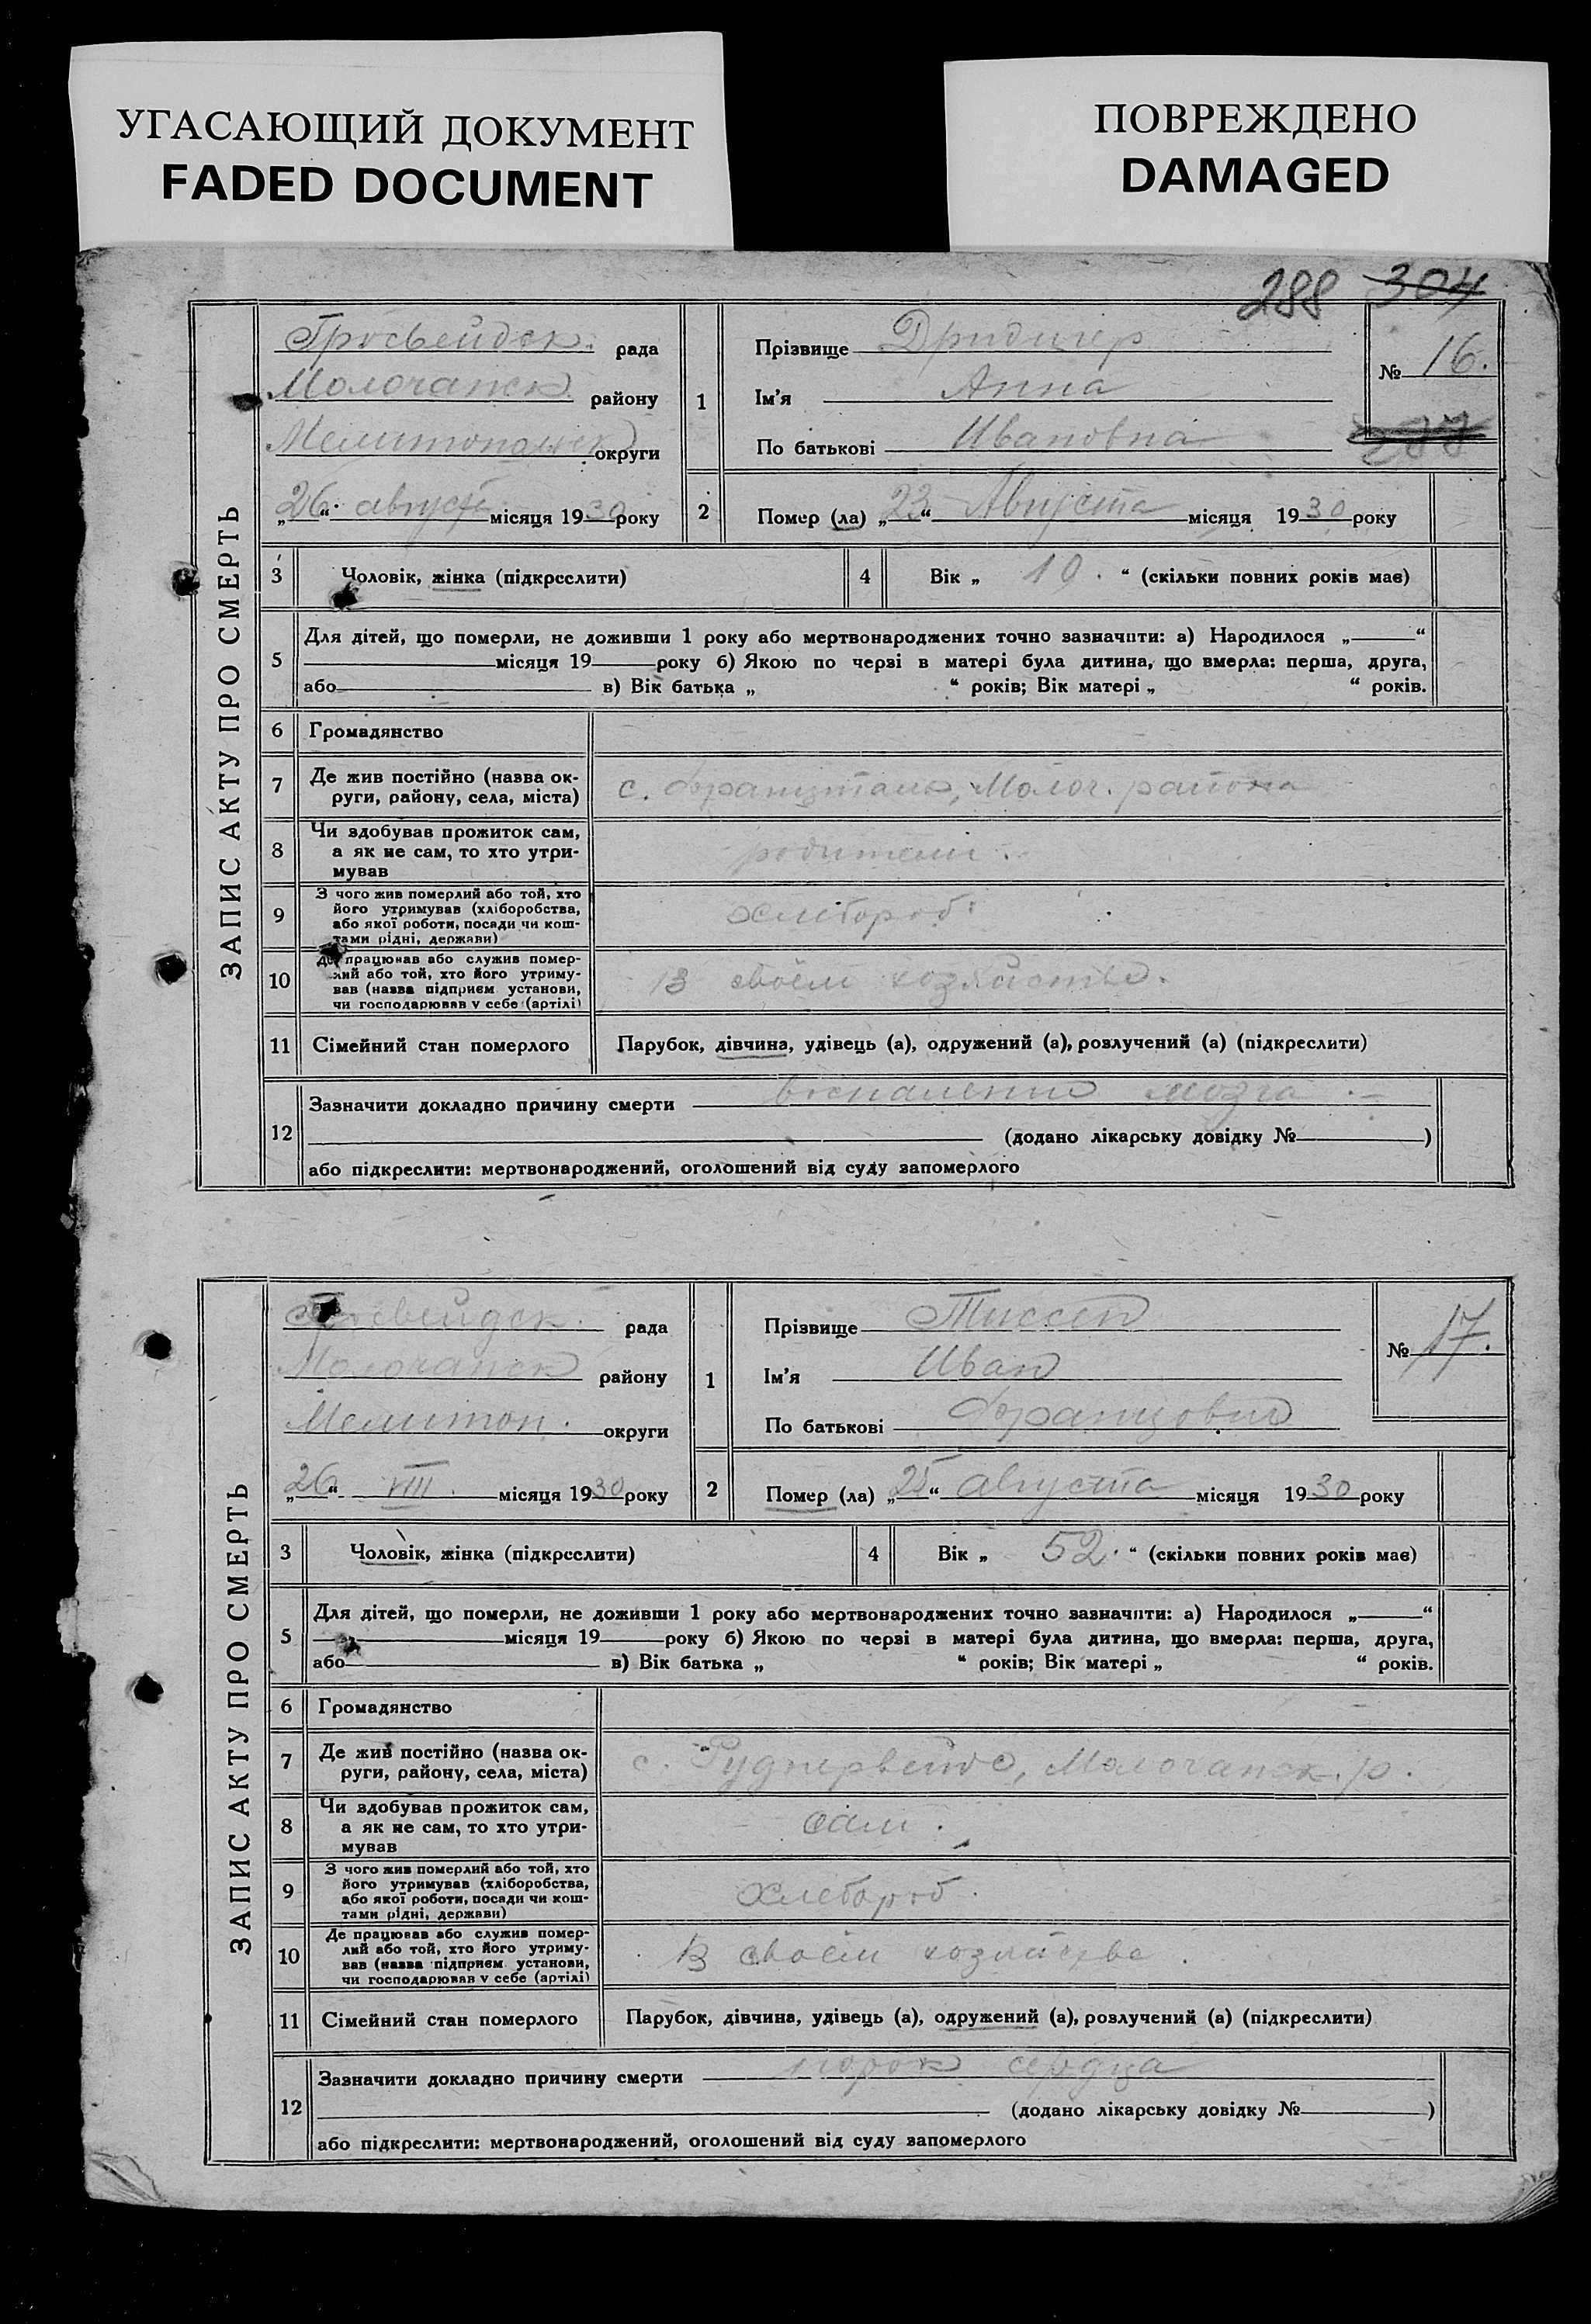 УГАСАЮЩИЙ ДОКУМЕНТ
FADED DOCUMENT
ПОВРЕЖДЕНО
DAMAGED
288 304
ЗАПИС АКТУ ПРО СМЕРТЬ
Гросвейдск. рада
Молочанск району
Мелитопольск округи
„26“ август місяця 1930 року
1
Прізвище Дридигер
Ім'я Анна
По батькові Ивановна
№ 16.
2
Помер (ла) „23“ Августа місяця 1930 року
3 Чоловік, жінка (підкреслити)
4 Вік „ 10. “ (скільки повних років має)
5 Для дітей, що померли, не доживши 1 року або мертвонароджених точно зазначити: а) Народилося „ “
місяця 19 року б) Якою по черзі в матері була дитина, що вмерла: перша, друга,
або в) Вік батька „ “ років; Вік матері „ “ років.
6 Громадянство
7 Де жив постійно (назва ок-
руги, району, села, міста)
с. Францталь, Молоч. района
8 Чи здобував прожиток сам,
а як не сам, то хто утри-
мував
родители.
9 З чого жив померлий або той, хто
його утримував (хліборобства,
або якої роботи, посади чи кош-
тами рідні, держави)
Хлебороб.
10 Де працював або служив помер-
лий або той, хто його утриму-
вав (назва підприєм. установи,
чи господарював у себе (артілі)
В своем хозяйстве.
11 Сімейний стан померлого Парубок, дівчина, удівець (а), одружений (а), розлучений (а) (підкреслити)
12 Зазначити докладно причину смерти воспаление мозга
(додано лікарську довідку № )
або підкреслити: мертвонароджений, оголошений від суду запомерлого
ЗАПИС АКТУ ПРО СМЕРТЬ
Гросвейдск. рада
Молочанск району
Мелитоп. округи
„26“ VIII. місяця 1930 року
1
Прізвище Тиссен
Ім'я Иван
По батькові Францович
№ 17.
2
Помер (ла) „25“ августа місяця 1930 року
3 Чоловік, жінка (підкреслити)
4 Вік „ 52. “ (скільки повних років має)
5 Для дітей, що померли, не доживши 1 року або мертвонароджених точно зазначити: а) Народилося „ “
місяця 19 року б) Якою по черзі в матері була дитина, що вмерла: перша, друга,
або в) Вік батька „ “ років; Вік матері „ “ років.
6 Громадянство
7 Де жив постійно (назва ок-
руги, району, села, міста)
с. Руднервейде, Молочанск. р.
8 Чи здобував прожиток сам,
а як не сам, то хто утри-
мував
сам.
9 З чого жив померлий або той, хто
його утримував (хліборобства,
або якої роботи, посади чи кош-
тами рідні, держави)
Хлебороб.
10 Де працював або служив помер-
лий або той, хто його утриму-
вав (назва підприєм. установи,
чи господарював у себе (артілі)
В своем хозяйстве
11 Сімейний стан померлого Парубок, дівчина, удівець (а), одружений (а), розлучений (а) (підкреслити)
12 Зазначити докладно причину смерти порок сердца
(додано лікарську довідку № )
або підкреслити: мертвонароджений, оголошений від суду запомерлого